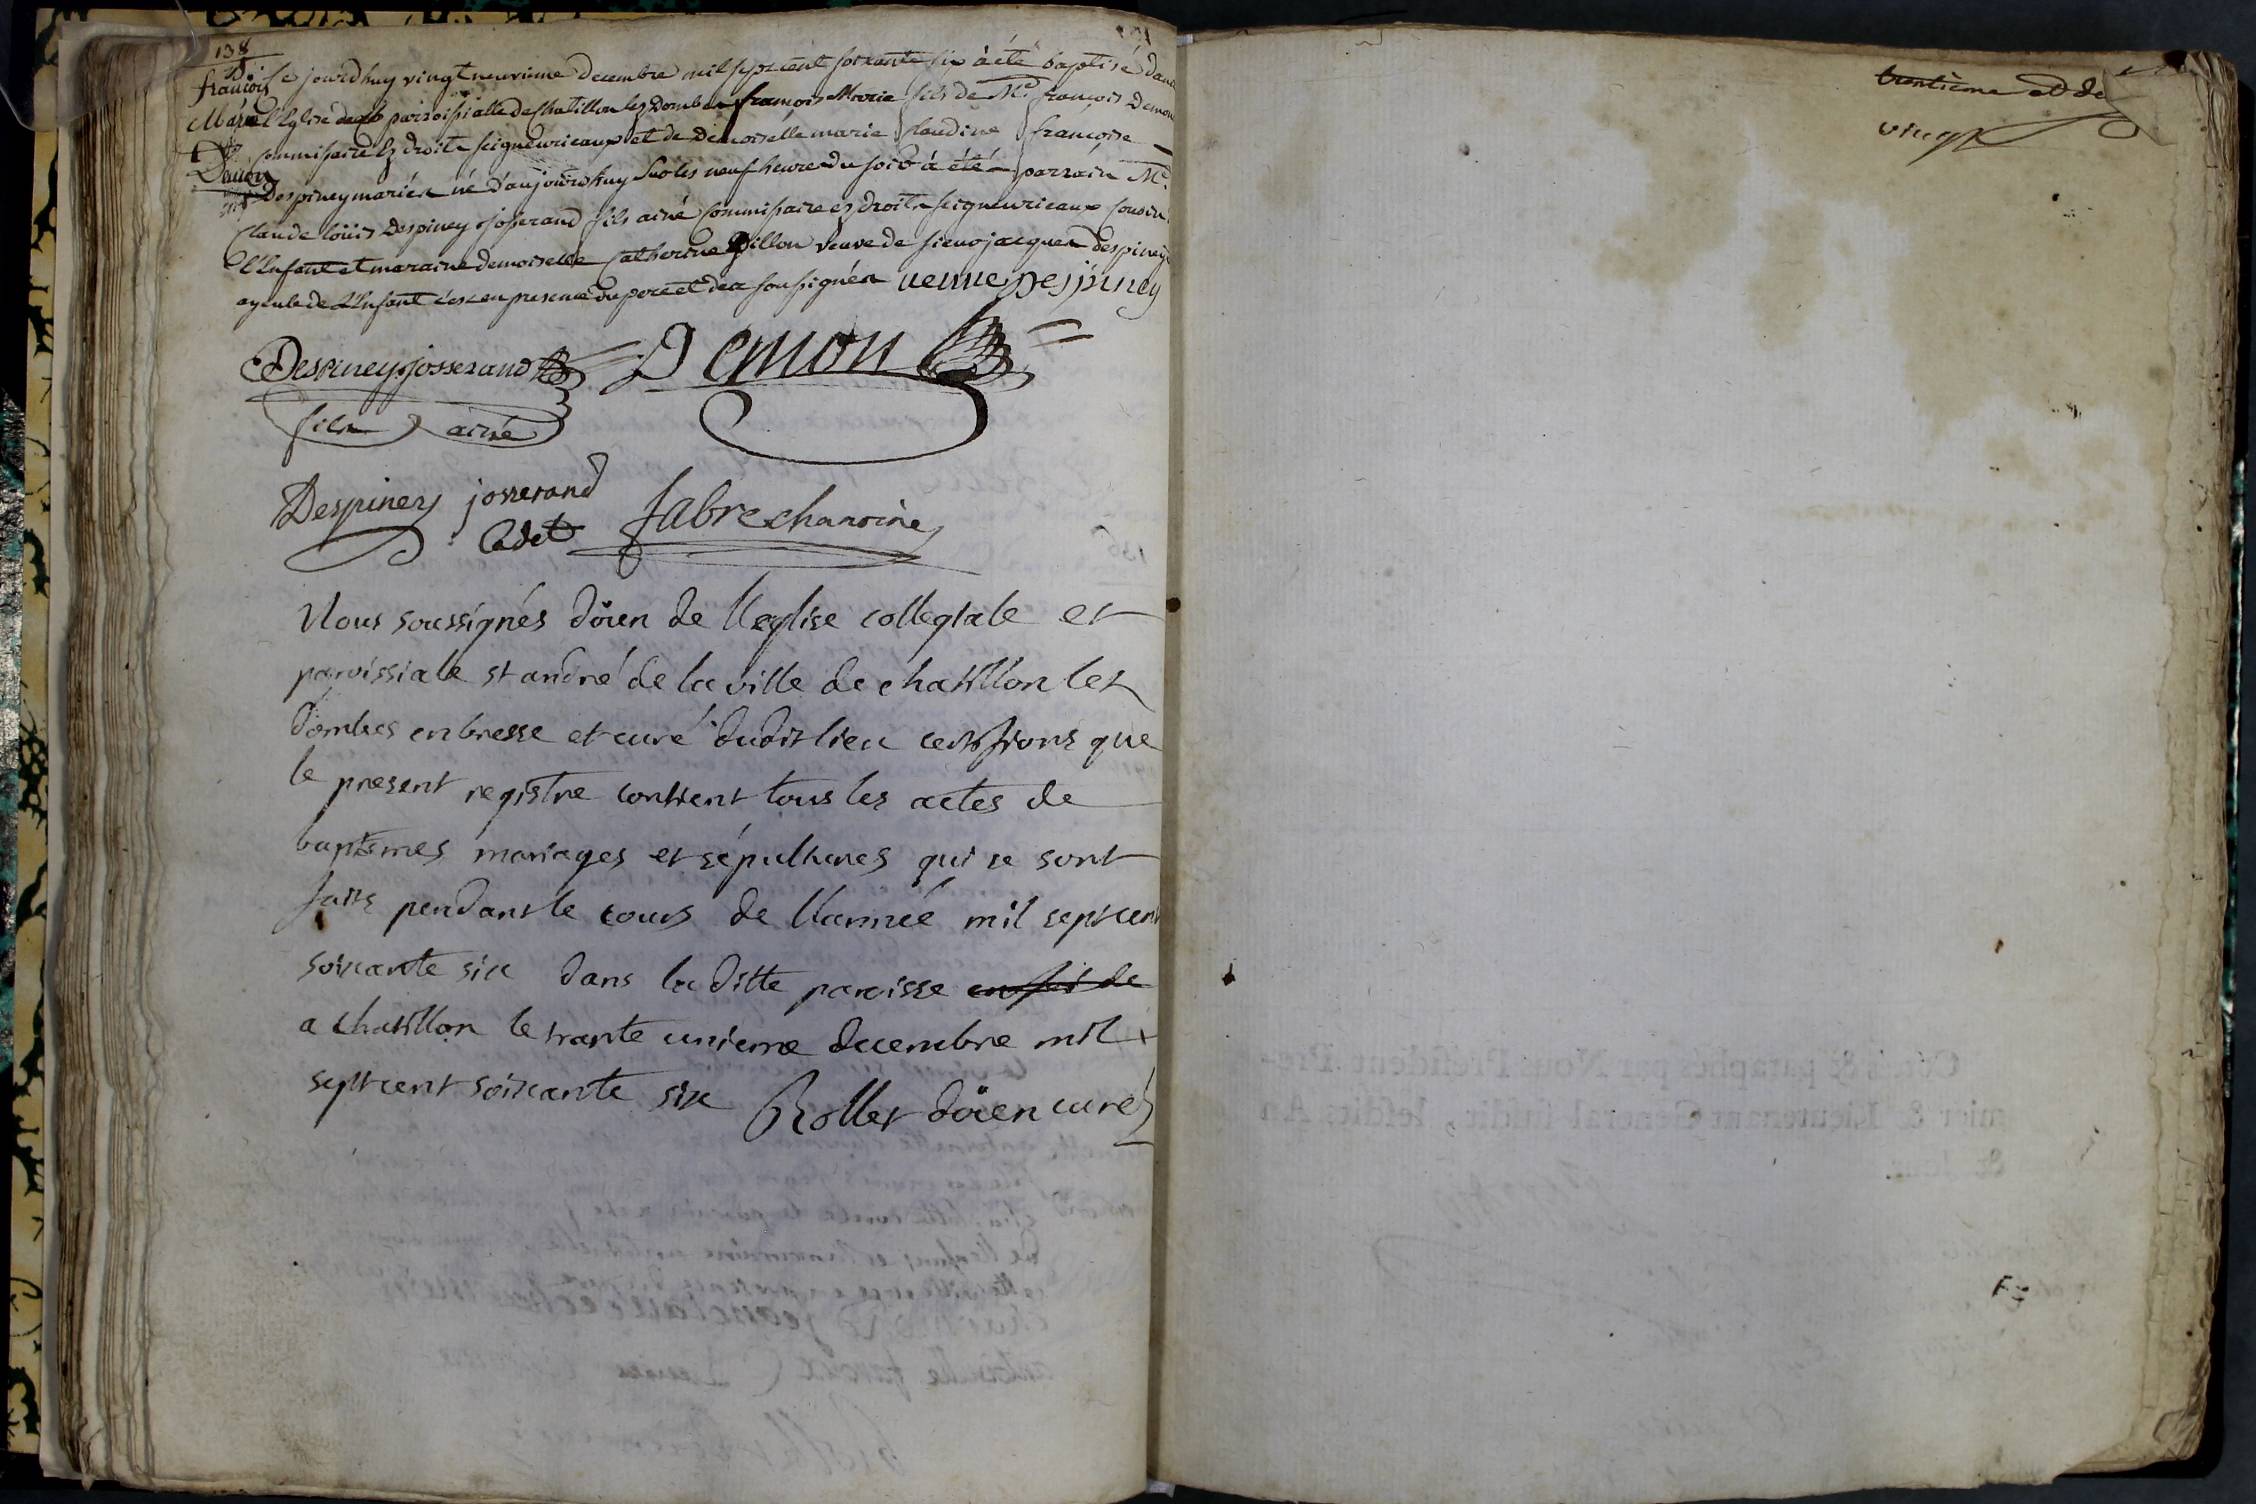 138
françois
Marie
Demon
Ce jourdhuy vingt neuvieme Decembre mil sept cent soixante six à été baptisé dans
l'Eglise parroissialle de Chatillon lez Dombes françois Marie fils de Mr. françois Demon
Commissaire Ez droits seigneuriaux et de Demoiselle marie Claudine françoise
Despiney mariés né d'aujourdhuy sur les neuf heure du soir à été parrain Mr.
Claude Loüis Despiney josserand fils ainé Commissaire ez droits seigneuriaux Cousin
l'Enfant et maraine demoiselle Catherine veuve de sieur jacques despiney
ayeule de L'Enfant c'est en presence du pere et des soussignés veuve Despiney
Despiney josserand Demon
fils ainé
Despiney josserand fabre chanoine
Cadet
Nous soussignés döien de l'eglise collegiale et
paroissiale st andré de la ville de chatillon les
dombes en bresse et curé dudit lieu certifions que
le present registre contient tous les actes de
baptêmes mariages et sépultures qui se sont
faits pendant le cours de l'année mil sept cent
soixante six dans la ditte paroisse en foi de
a chatillon le trante unieme decembre mil
sept cent soixante six Rollet döien curé
trentieme et de
vingt